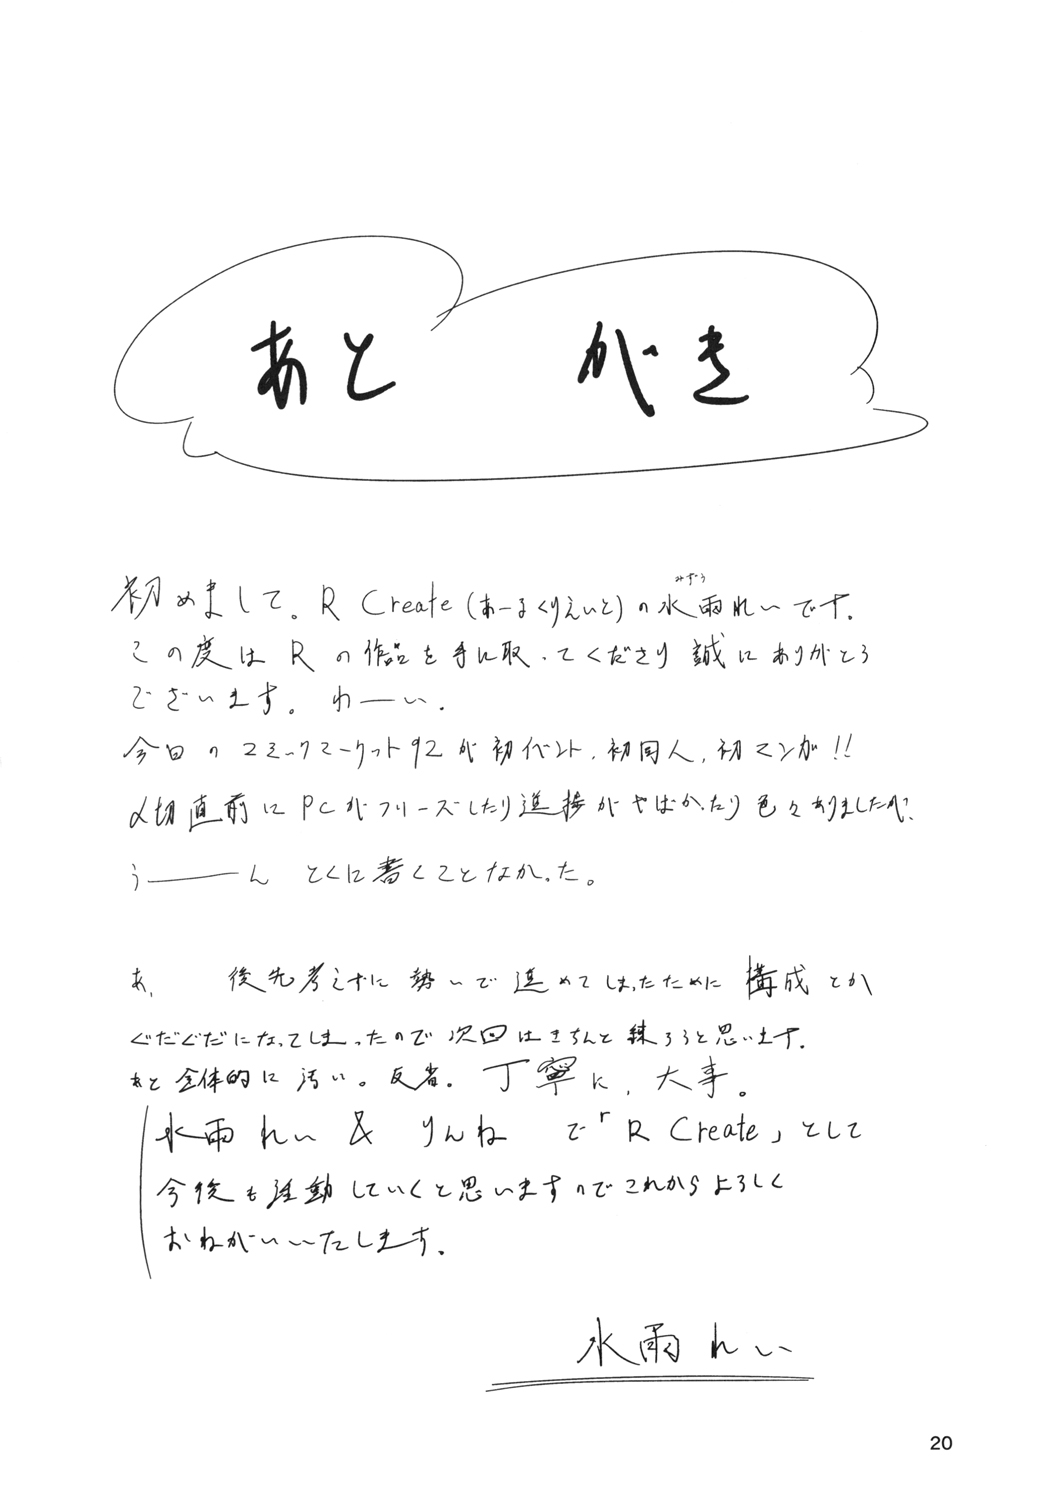 あとがき
初めまして。R Create(あーるくりえいと)の水雨れいです。
みずう
この度はRの作品を手に取ってくださり誠にありがとう
ございます。わーい.
今回のコミックマーケット92が初イベント,初同人,初マンガ!!
〆切直前にPCがフリーズしたり進捗がやばかったり色々ありましたが、
う――――ん とくに書くことなかった。
あ、 後先考えずに勢いで進めてしまったために構成とか
ぐだぐだになってしまったので次回はきちんと練ろうと思います.
あと全体的に汚い。反省。丁寧に,大事。
水雨れい & りんね で「R Create」として
今後も活動していくと思いますのでこれからよろしく
おねがいいたします.
水雨れい
20